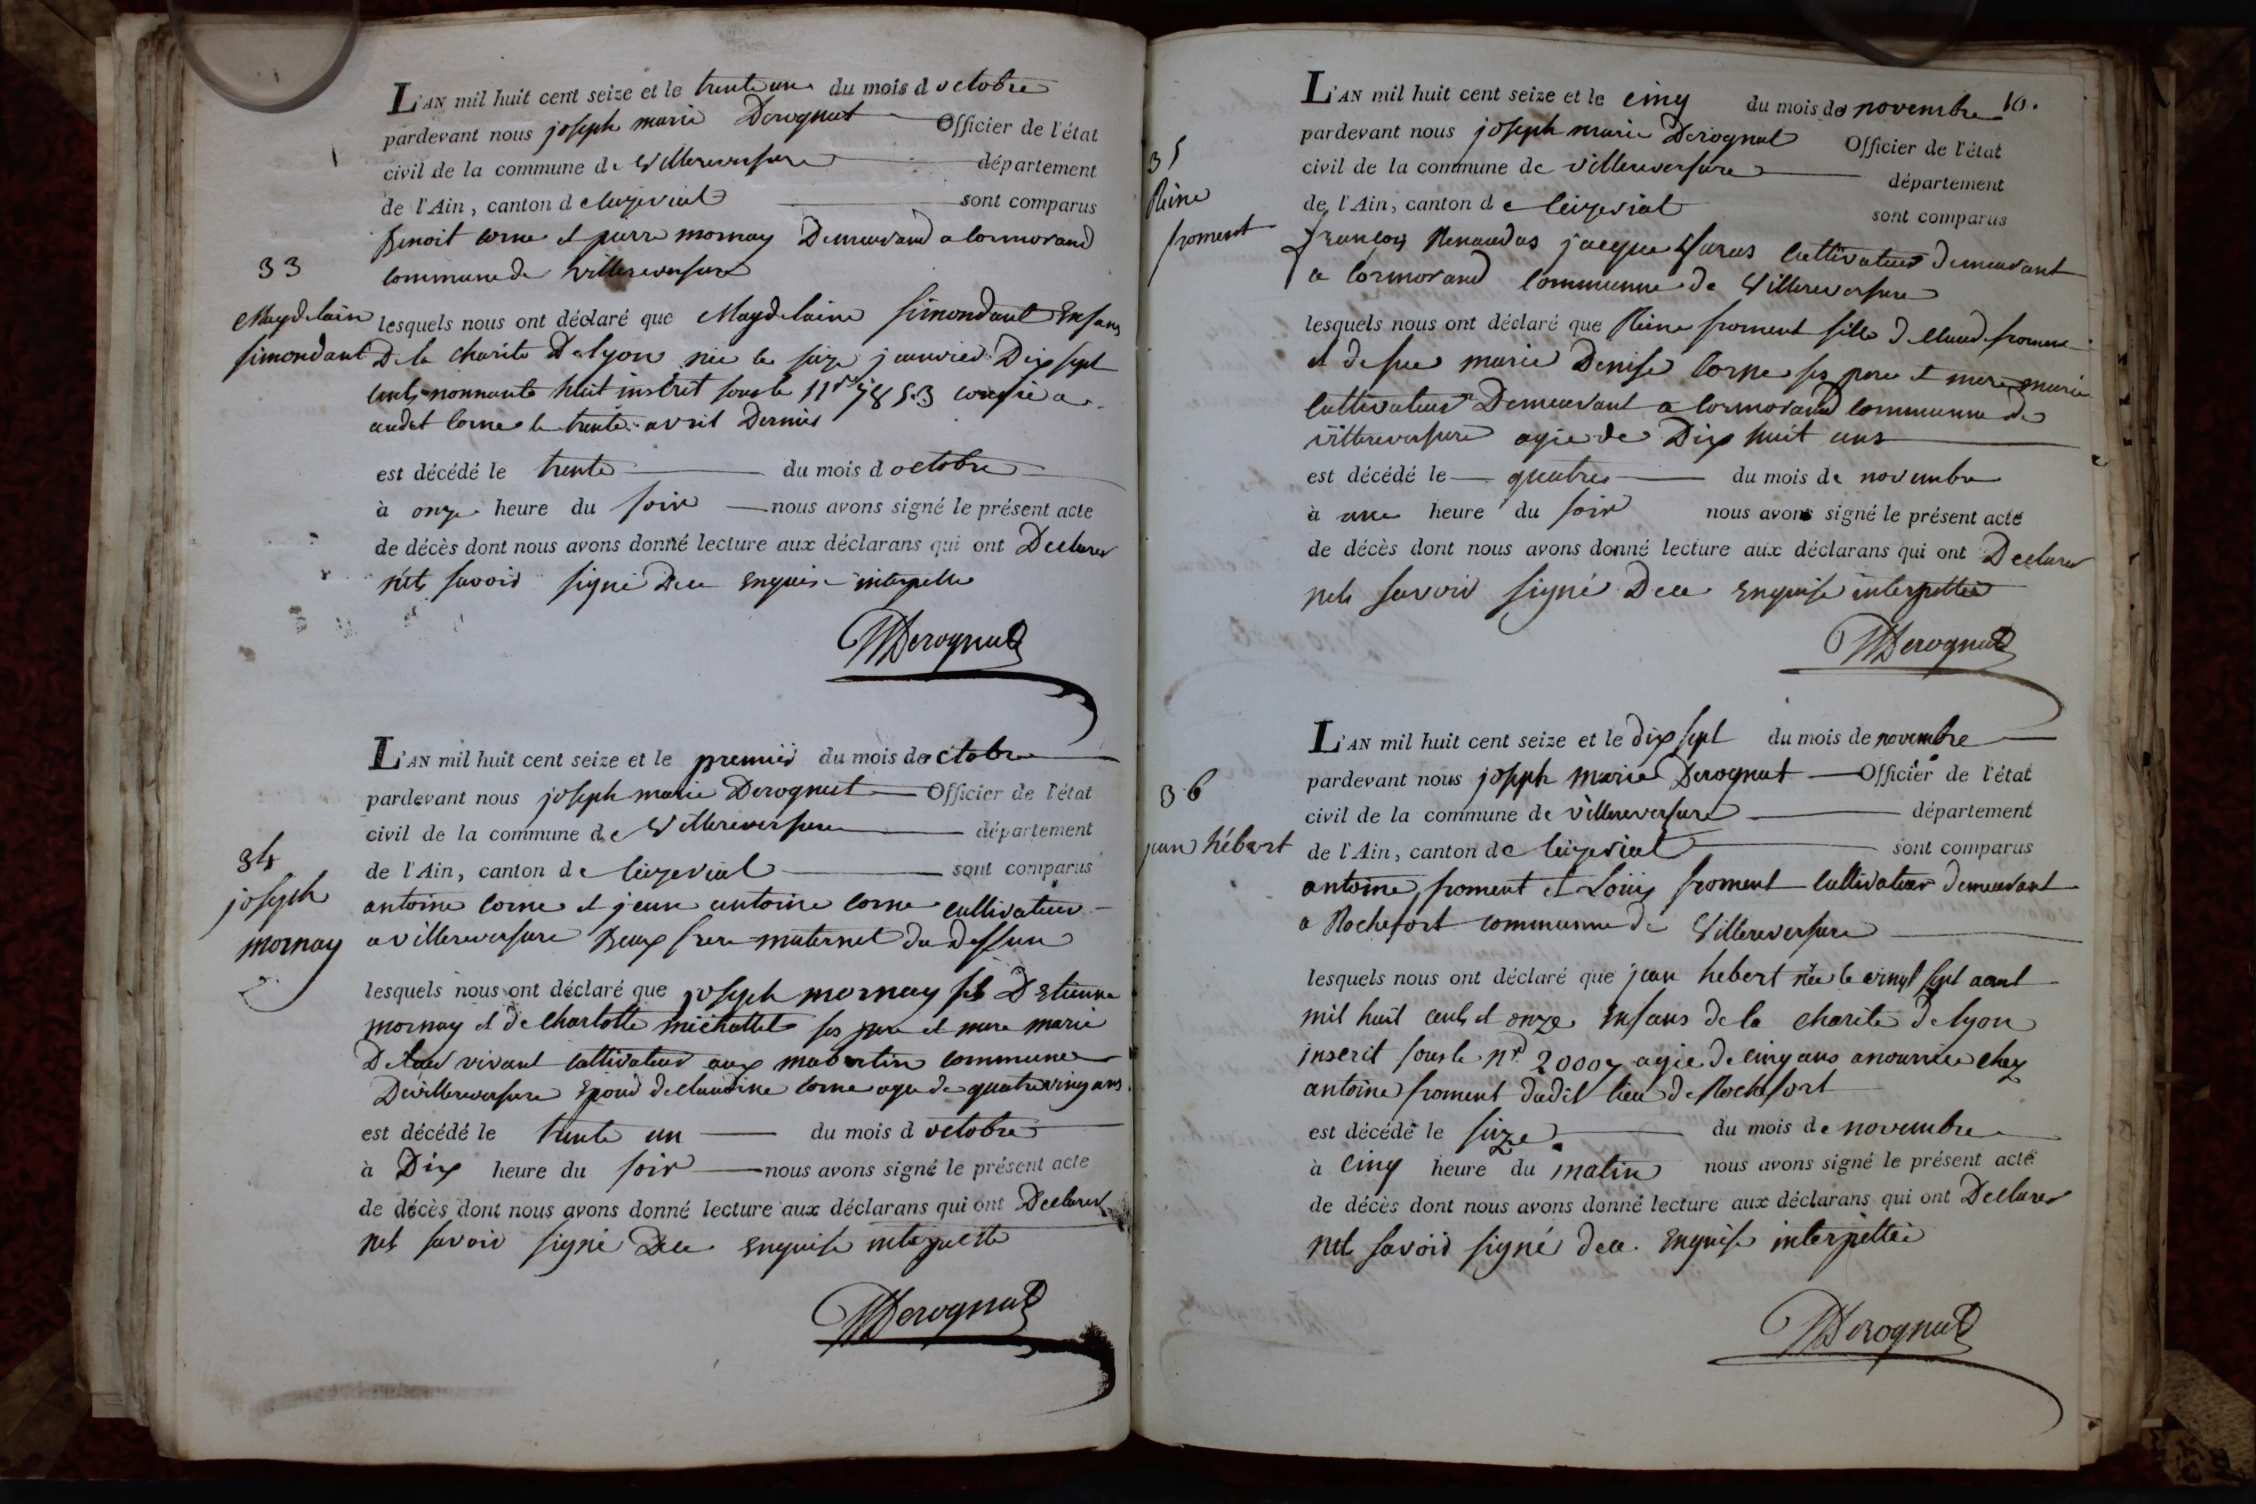 L'AN mil huit cent seize et le trente un du mois d octobre
pardevant nous joseph marie Derognat Officier de l'état
civil de la commune de Villereversure département
de l'Ain, canton de Ceizeriat sont comparus
Benoit corne et pierre mornay Demeurand a Cormorand
commune de villereversure
33
Magdelaine
simondant
lesquels nous ont déclaré que Magdelaine simondant Enfans
De la charité De lyon née le seize janvier Dix sept
cents nonnante huit inscrit sous le 11 7853 confié a
audit Corne le trente avril Dernier
est décédé le trente du mois d octobre
à onze heure du soir nous avons signé le présent acte
de décès dont nous avons donné lecture aux déclarans qui ont Declarer
nets savoir signé De ce Enquise interpelle
Derognat
L'AN mil huit cent seize et le premier du mois de octobre
pardevant nous joseph marie Derognat Officier de l'état
civil de la commune de Villereversure département
de l'Ain, canton de Ceizeriat sont comparus
34
joseph
mornay
antoine corne et jean antoine corne cultivateur
a villereversure Deux frere maternel du Deffun
lesquels nous ont déclaré que joseph mornay fils D Etienne
mornay et de charlotte michallet ses pere et mere marie
De leur vivant cultivateur aux commune
De villereversure Epoux de claudine corne age de quatre ving ans
est décédé le trente un du mois d octobre
à Dix heure du soir nous avons signé le présent acte
de décès dont nous avons donné lecture aux déclarans qui ont Declarer
nets savoir signé De ce Enquise interpelle
Derognat
10.
L'AN mil huit cent seize et le cinq du mois de novembre
pardevant nous joseph marie Derognat Officier de l'état
civil de la commune de villereversure département
de l'Ain, canton de Ceizeriat sont comparus
35
Reine
froment
françois Renaudas jacque cultivateur demeurant
a Cormorand commune de Villereversure
lesquels nous ont déclaré que Reine froment fille de claude froment
et de feu marie Denise Corne ses pere et mere marie
Cultivateur Demeurant a Cormorand commune de
villereversure agie de Dix huit ans
est décédé le quatres du mois de novembre
à une heure du soir nous avons signé le présent acte
de décès dont nous avons donné lecture aux déclarans qui ont Declarer
nets savoir signé De ce Enquise interpellée
Derognat
L'AN mil huit cent seize et le dix sept du mois de novembre
pardevant nous joseph marie Derognat Officier de l'état
civil de la commune de villereversure département
de l'Ain, canton de Ceizeriat sont comparus
36
jean hébert
antoine froment et Louis froment cultivateur demeurant
a Rochefort commune de Villereversure
lesquels nous ont déclaré que jean hebert née le vingt sept aout
mil huit cents et onze Enfans de la charité de lyon
inscrit sous le nr 20007 agie de cinq ans a nourrice chez
antoine froment dudit lieu de Rochefort
est décédé le seize du mois de novembre
à cinq heure du matin nous avons signé le présent acte
de décès dont nous avons donné lecture aux déclarans qui ont Declarer
nets savoir signé de ce Enquise interpellée
Derognat